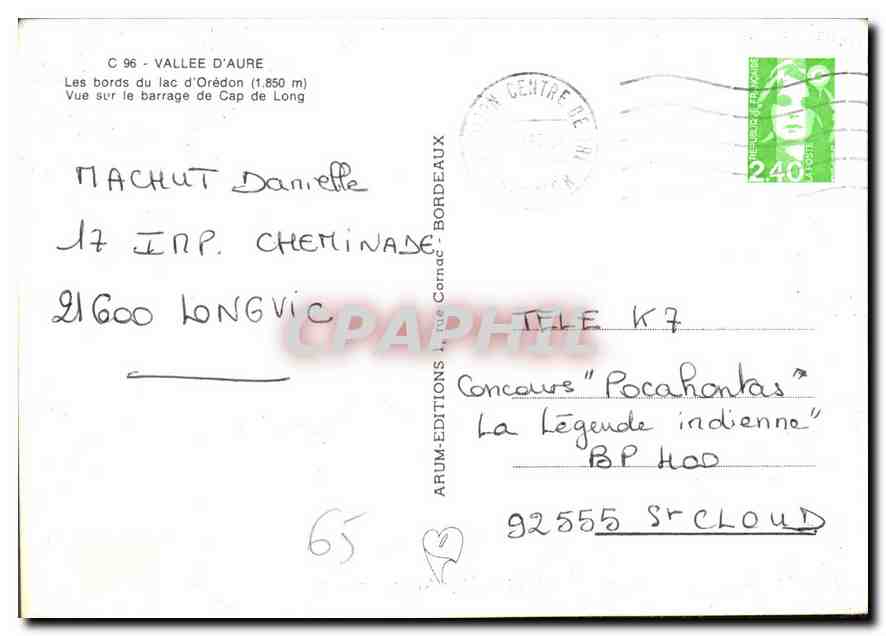 C 96 - VALLEE D'AURE
Les bords du lac d'Orédon (1.850 m)
Vue sur le barrage de Cap de Long
MACHUT Danielle
17 IMP. CHEMINADE
21600 LONGVIC
ARUM-EDITIONS 1, rue Cornac - BORDEAUX
CENTRE DE
REPUBLIQUE FRANÇAISE
2,40
LA POSTE
TELE K7
Concours "Pocahontas"
La Légende indienne"
BP 400
92555 St CLOUD
65
CPAPHIL